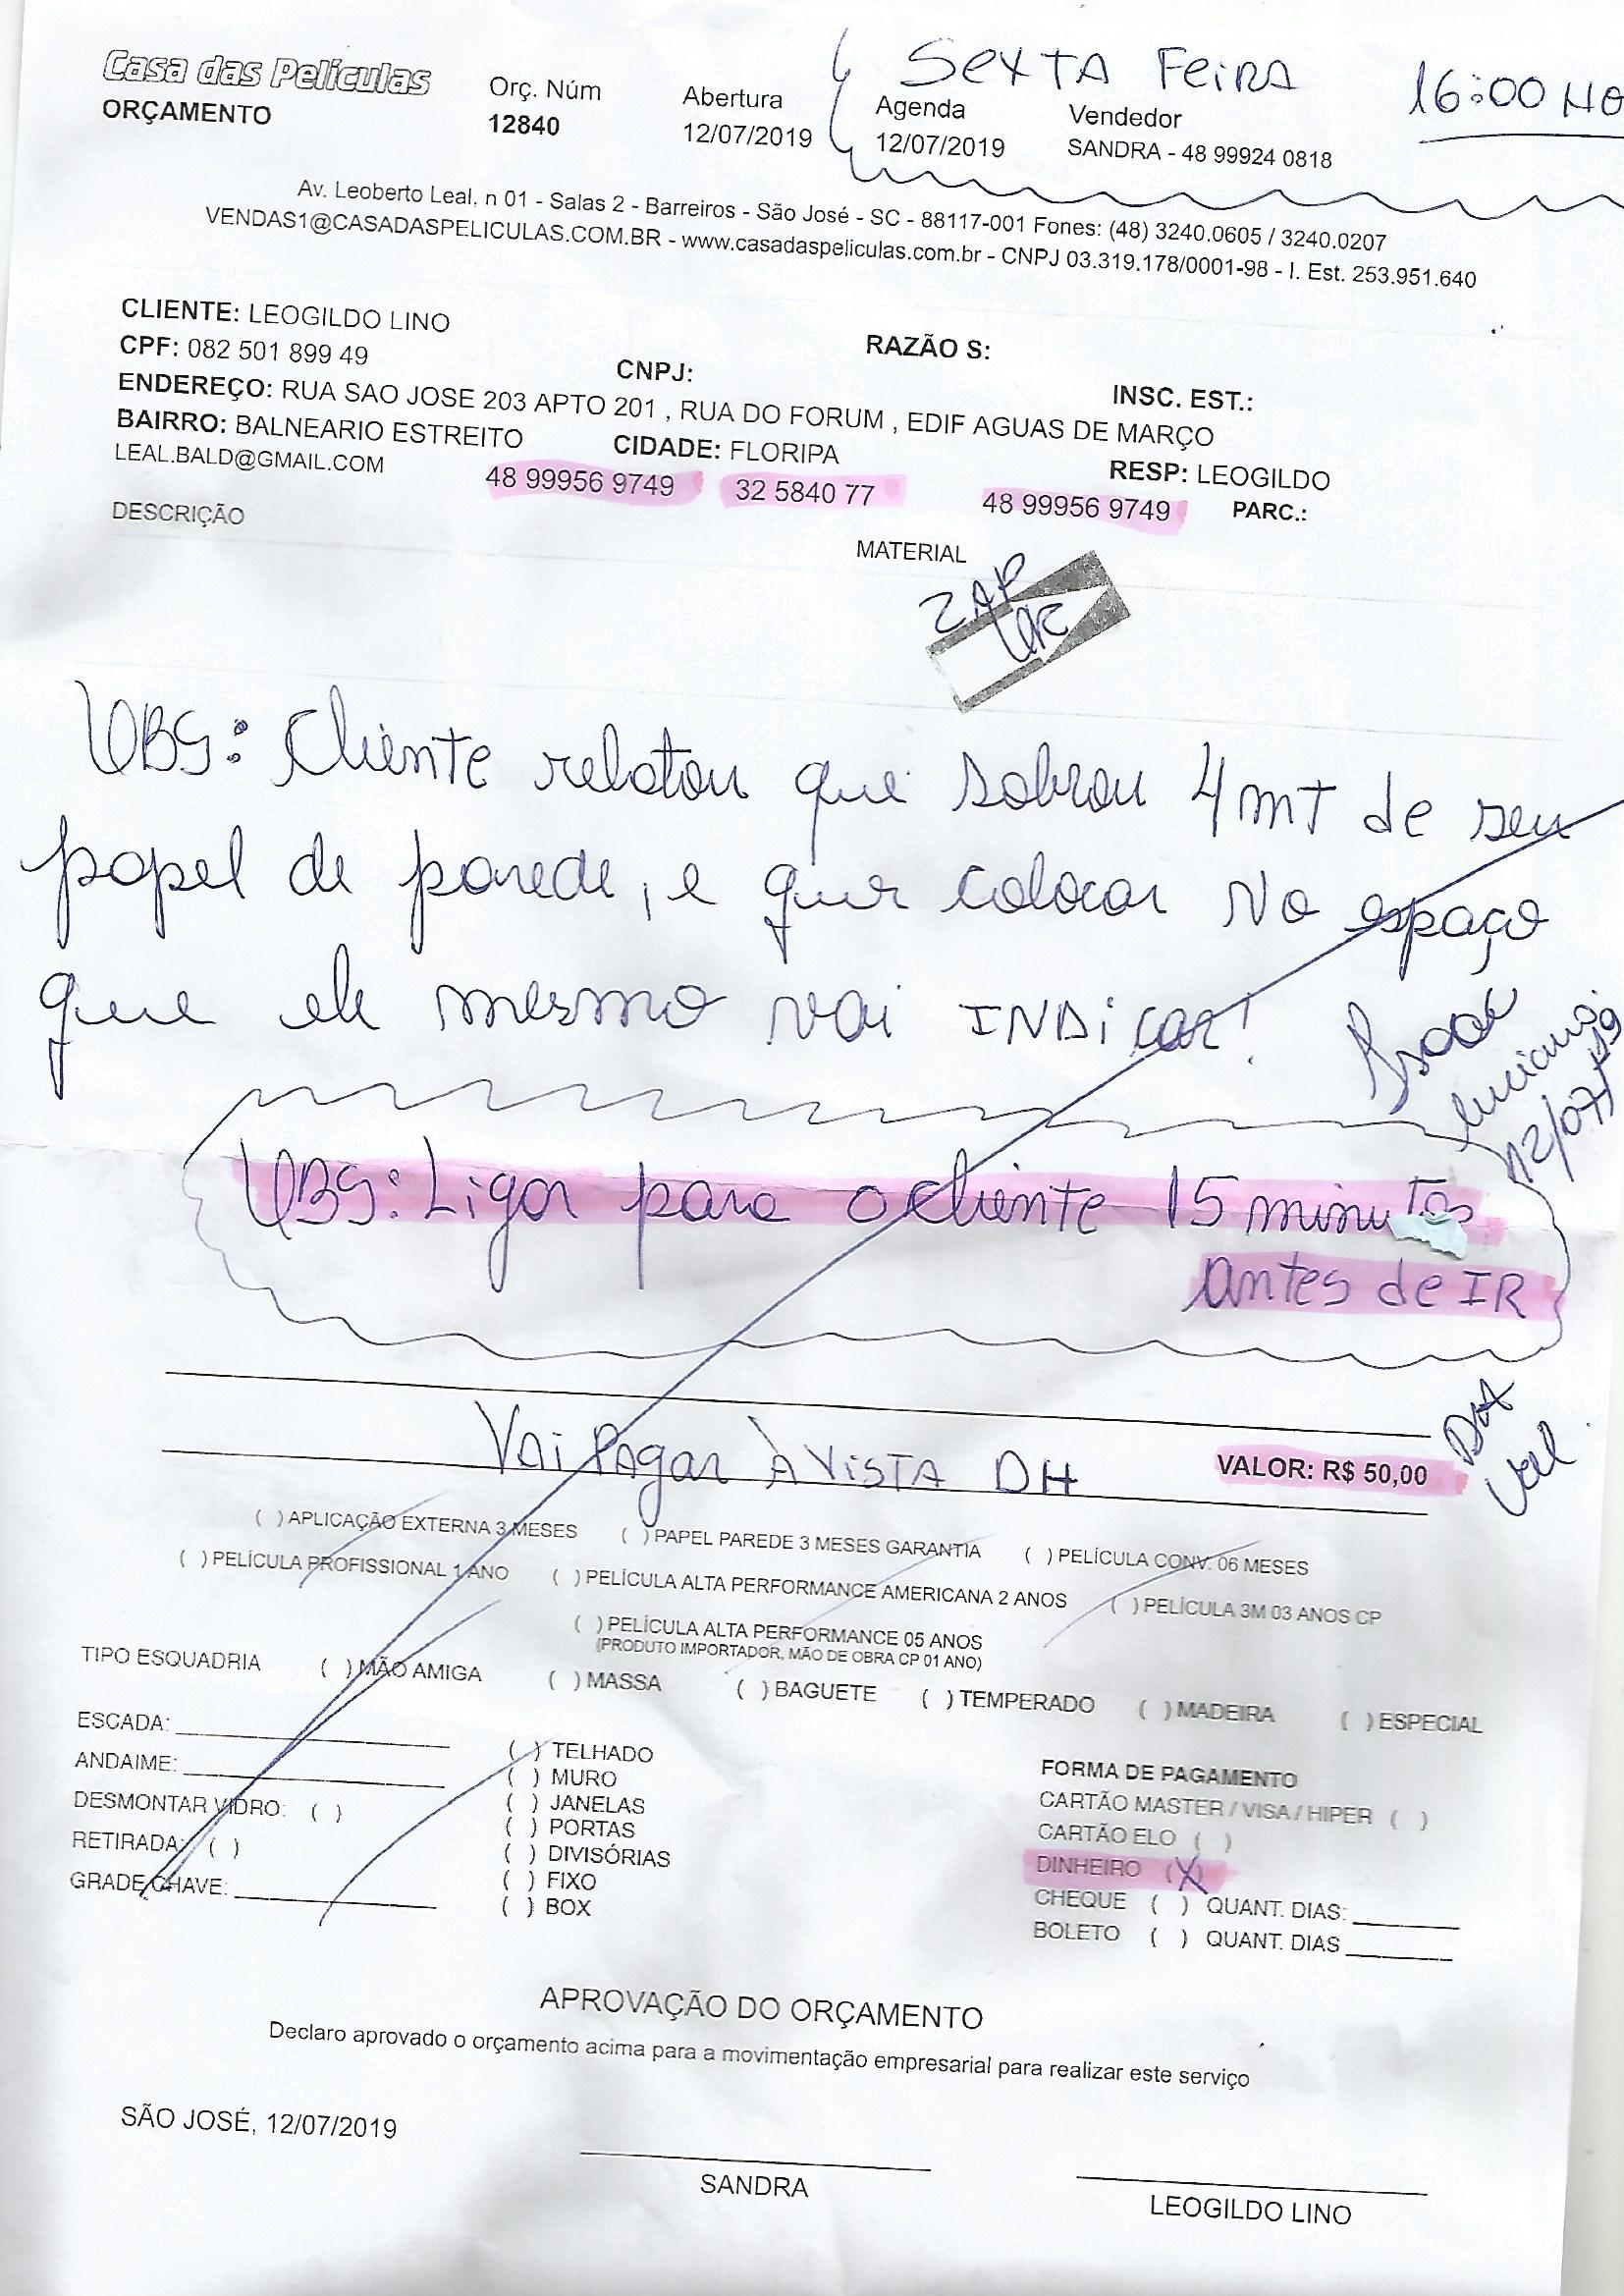 SEXTA FEIRA 16:00 HO
Casa das Películas
ORÇAMENTO
Orç. Núm
12840
Abertura
12/07/2019
Agenda
12/07/2019
Vendedor
SANDRA - 48 99924 0818
Av. Leoberto Leal, n 01 - Salas 2 - Barreiros - São José - SC - 88117-001 Fones: (48) 3240.0605 / 3240.0207
VENDAS1@CASADASPELICULAS.COM.BR - www.casadaspeliculas.com.br - CNPJ 03.319.178/0001-98 - I. Est. 253.951.640
CLIENTE: LEOGILDO LINO RAZÃO S:
CPF: 082 501 899 49 CNPJ: INSC. EST.:
ENDEREÇO: RUA SAO JOSE 203 APTO 201 , RUA DO FORUM , EDIF AGUAS DE MARÇO
BAIRRO: BALNEARIO ESTREITO CIDADE: FLORIPA RESP: LEOGILDO
LEAL.BALD@GMAIL.COM 48 99956 9749 32 5840 77 48 99956 9749 PARC.:
DESCRIÇÃO MATERIAL
ZAP
OBS: Cliente relatou que sobrou 4 mt de seu
papel de parede, e quer colocar no espaço
que ele mesmo vai INDicar!
12/07/19
OBS: Ligar para o cliente 15 minutos
antes de IR
Vai Pagar À VISTA DH
VALOR: R$ 50,00
( ) APLICAÇÃO EXTERNA 3 MESES ( ) PAPEL PAREDE 3 MESES GARANTIA ( ) PELÍCULA CONV. 06 MESES
( ) PELÍCULA PROFISSIONAL 1 ANO ( ) PELÍCULA ALTA PERFORMANCE AMERICANA 2 ANOS ( ) PELÍCULA 3M 03 ANOS CP
( ) PELÍCULA ALTA PERFORMANCE 05 ANOS
(PRODUTO IMPORTADOR, MÃO DE OBRA CP 01 ANO)
TIPO ESQUADRIA ( ) MÃO AMIGA ( ) MASSA ( ) BAGUETE ( ) TEMPERADO ( ) MADEIRA ( ) ESPECIAL
ESCADA:
ANDAIME:
DESMONTAR VIDRO: ( )
RETIRADA: ( )
GRADE CHAVE:
( ) TELHADO
( ) MURO
( ) JANELAS
( ) PORTAS
( ) DIVISÓRIAS
( ) FIXO
( ) BOX
FORMA DE PAGAMENTO
CARTÃO MASTER / VISA / HIPER ( )
CARTÃO ELO ( )
DINHEIRO (X)
CHEQUE ( ) QUANT. DIAS:
BOLETO ( ) QUANT. DIAS
APROVAÇÃO DO ORÇAMENTO
Declaro aprovado o orçamento acima para a movimentação empresarial para realizar este serviço
SÃO JOSÉ, 12/07/2019
SANDRA
LEOGILDO LINO